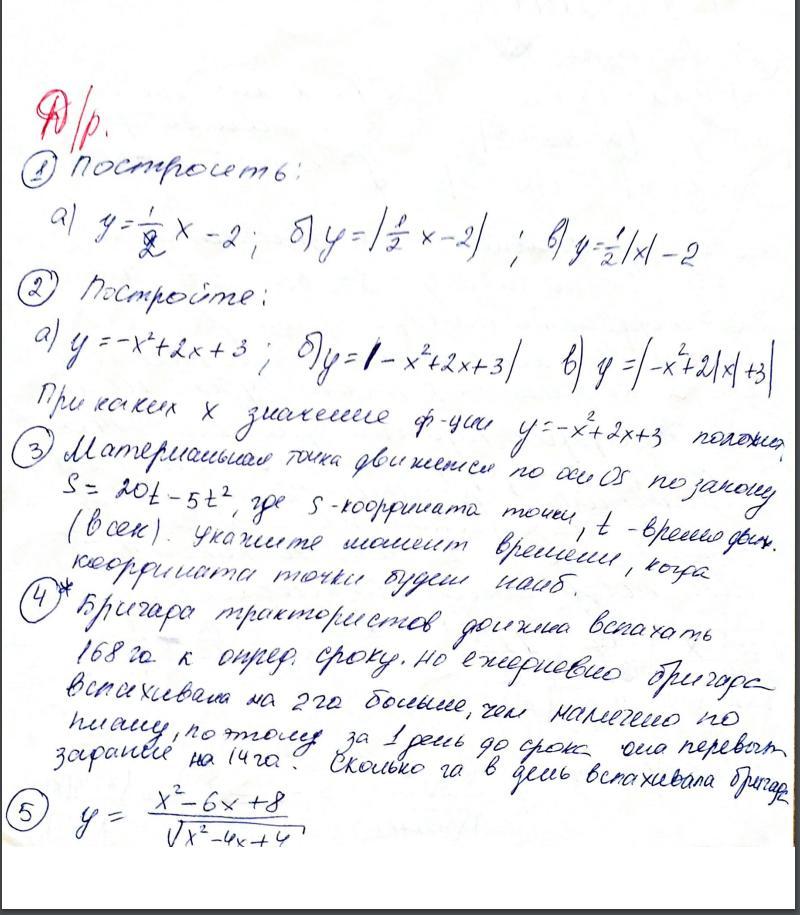 Д/р.
① Построить:
а) y = 1/2 x - 2; б) y = |1/2 x - 2| ; в) y = 1/2 |x| - 2
② Постройте:
а) y = -x² + 2x + 3 ; б) y = |-x² + 2x + 3| в) y = |-x² + 2|x| + 3|
При каких x значение ф-ции y = -x² + 2x + 3 положит.
③ Материальная точка движется по оси OS по закону
S = 20t - 5t², где S - координата точки, t - время движ.
(в сек). Укажите момент времени, когда
координата точки будет наиб.
④* Бригада трактористов должна вспахать
168 га к опред. сроку. Но ежедневно бригада
вспахивала на 2 га больше, чем намечено по
плану, поэтому за 1 день до срока она перевып.
задание на 14 га. Сколько га в день вспахивала бригада
⑤ y = (x² - 6x + 8) / √(x² - 4x + 4)